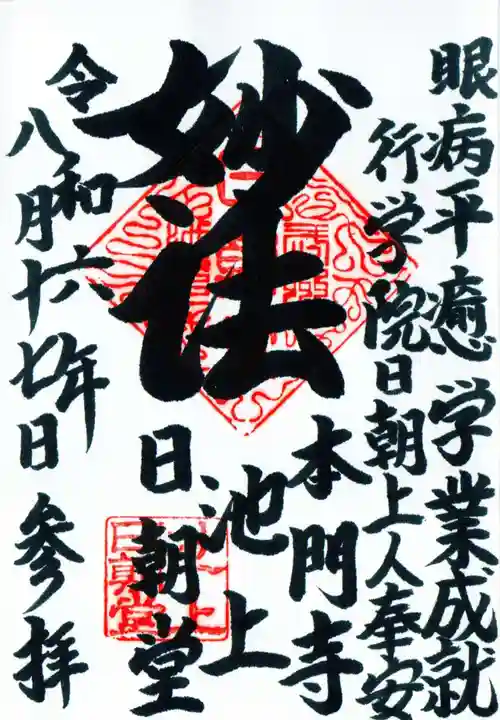 眼病平癒 学業成就
行学院日朝上人奉安
妙法
本門寺
池上
日朝堂
令和六年
八月十七日 参拝